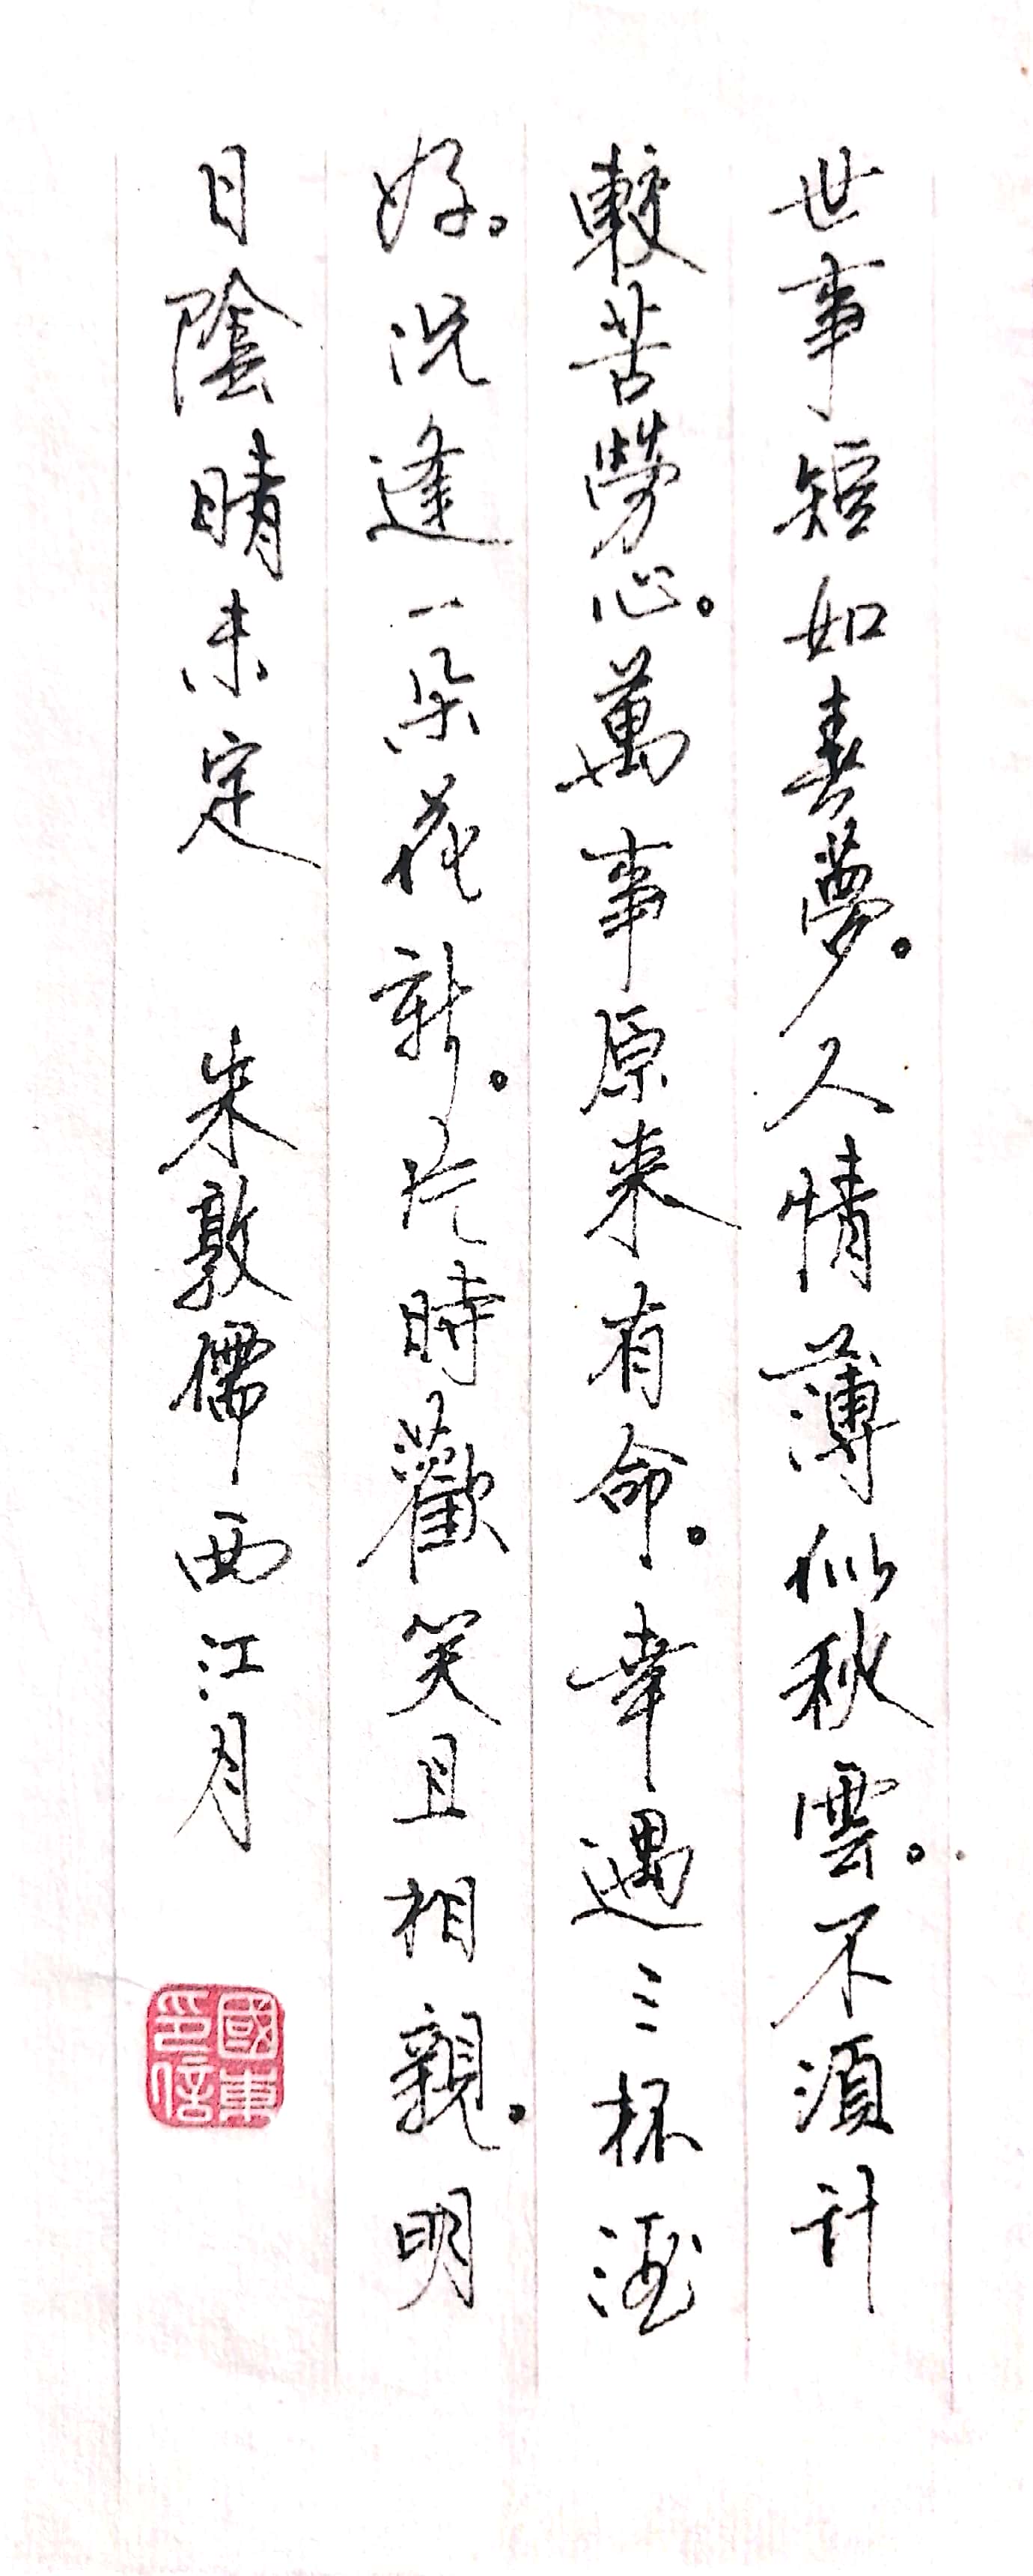 世事短如春夢。人情薄似秋雲。不須計
較苦勞心。萬事原来有命。幸遇三杯酒
好。況逢一朵花新。片時歡笑且相親。明
日陰晴未定 朱敦儒西江月
國東
印信